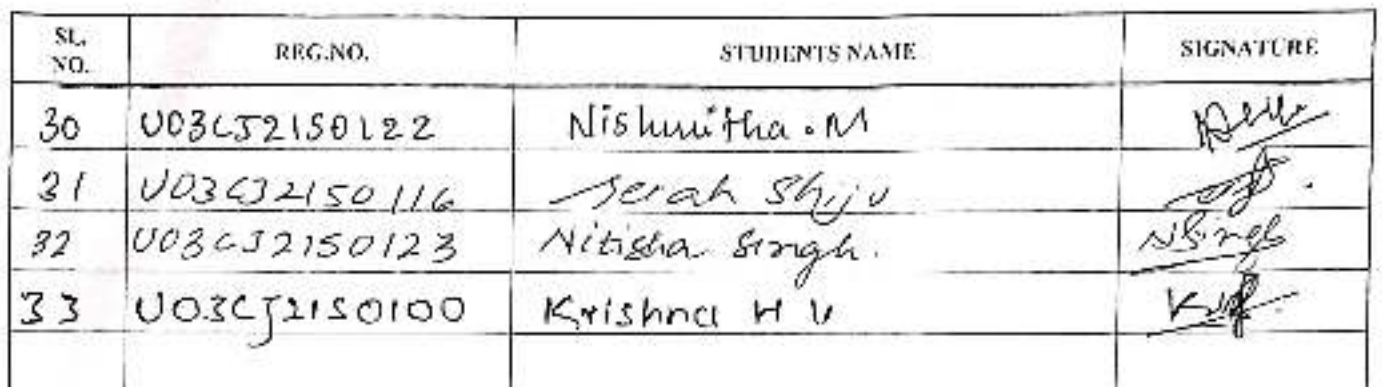 SL. NO. REG.NO. STUDENTS NAME SIGNATURE
30 U03CJ21S0122 Nishmitha . M
31 U03CJ21S0116 Serah Shiju
32 U03CJ21S0123 Nitisha Singh. NSingh
33 U03CJ21S0100 Krishna H V